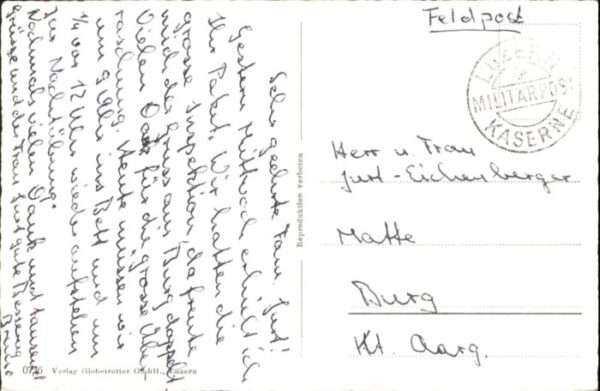 Feldpost
LUZERN
MILITÄRPOST
KASERNE
Herr u. Frau
Jurt-Eichenberger
Matte
Burg
Kt. Aarg.
Sehr geehrte Fam. Jurt!
Gestern Mittwoch erhielt ich
Ihr Paket. Wir hatten die
grosse Inspektion, da freute
mich der Gruss aus Burg doppelt
Vielen Dank für die grosse Über-
raschung. Heute müssen wir
um 6 Uhr ins Bett und um
1/4 vor 12 Uhr wieder aufstehen
zur Nachtübung.
Nochmals vielen Dank und tausend
Grüsse und der Frau Jurt gute Besserung
Reproduktion verboten
Verlag Globetrotter GmbH., Luzern